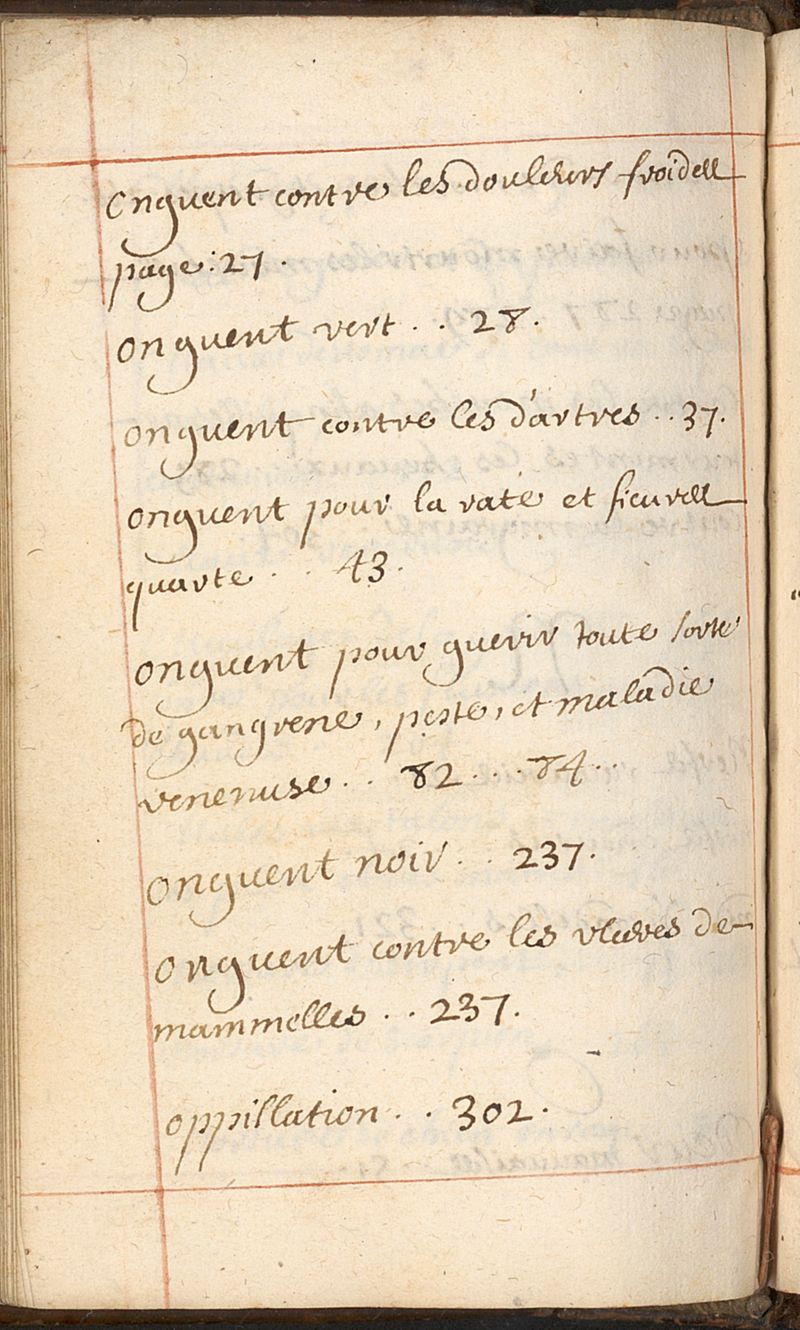 Onguent contre les douleurs froides
page: 27.
onguent vert . . 28.
onguent contre les d'artres . . 37.
onguent pour la rate et fieures
quarte . . 43.
onguent pour guerir toute sorte
de gangrene, peste, et maladie
venenuse . . 82 . . . 84 . .
onguent noir . . 237.
onguent contre les vlceres de
mammelles . . 237.
oppillation . . 302.